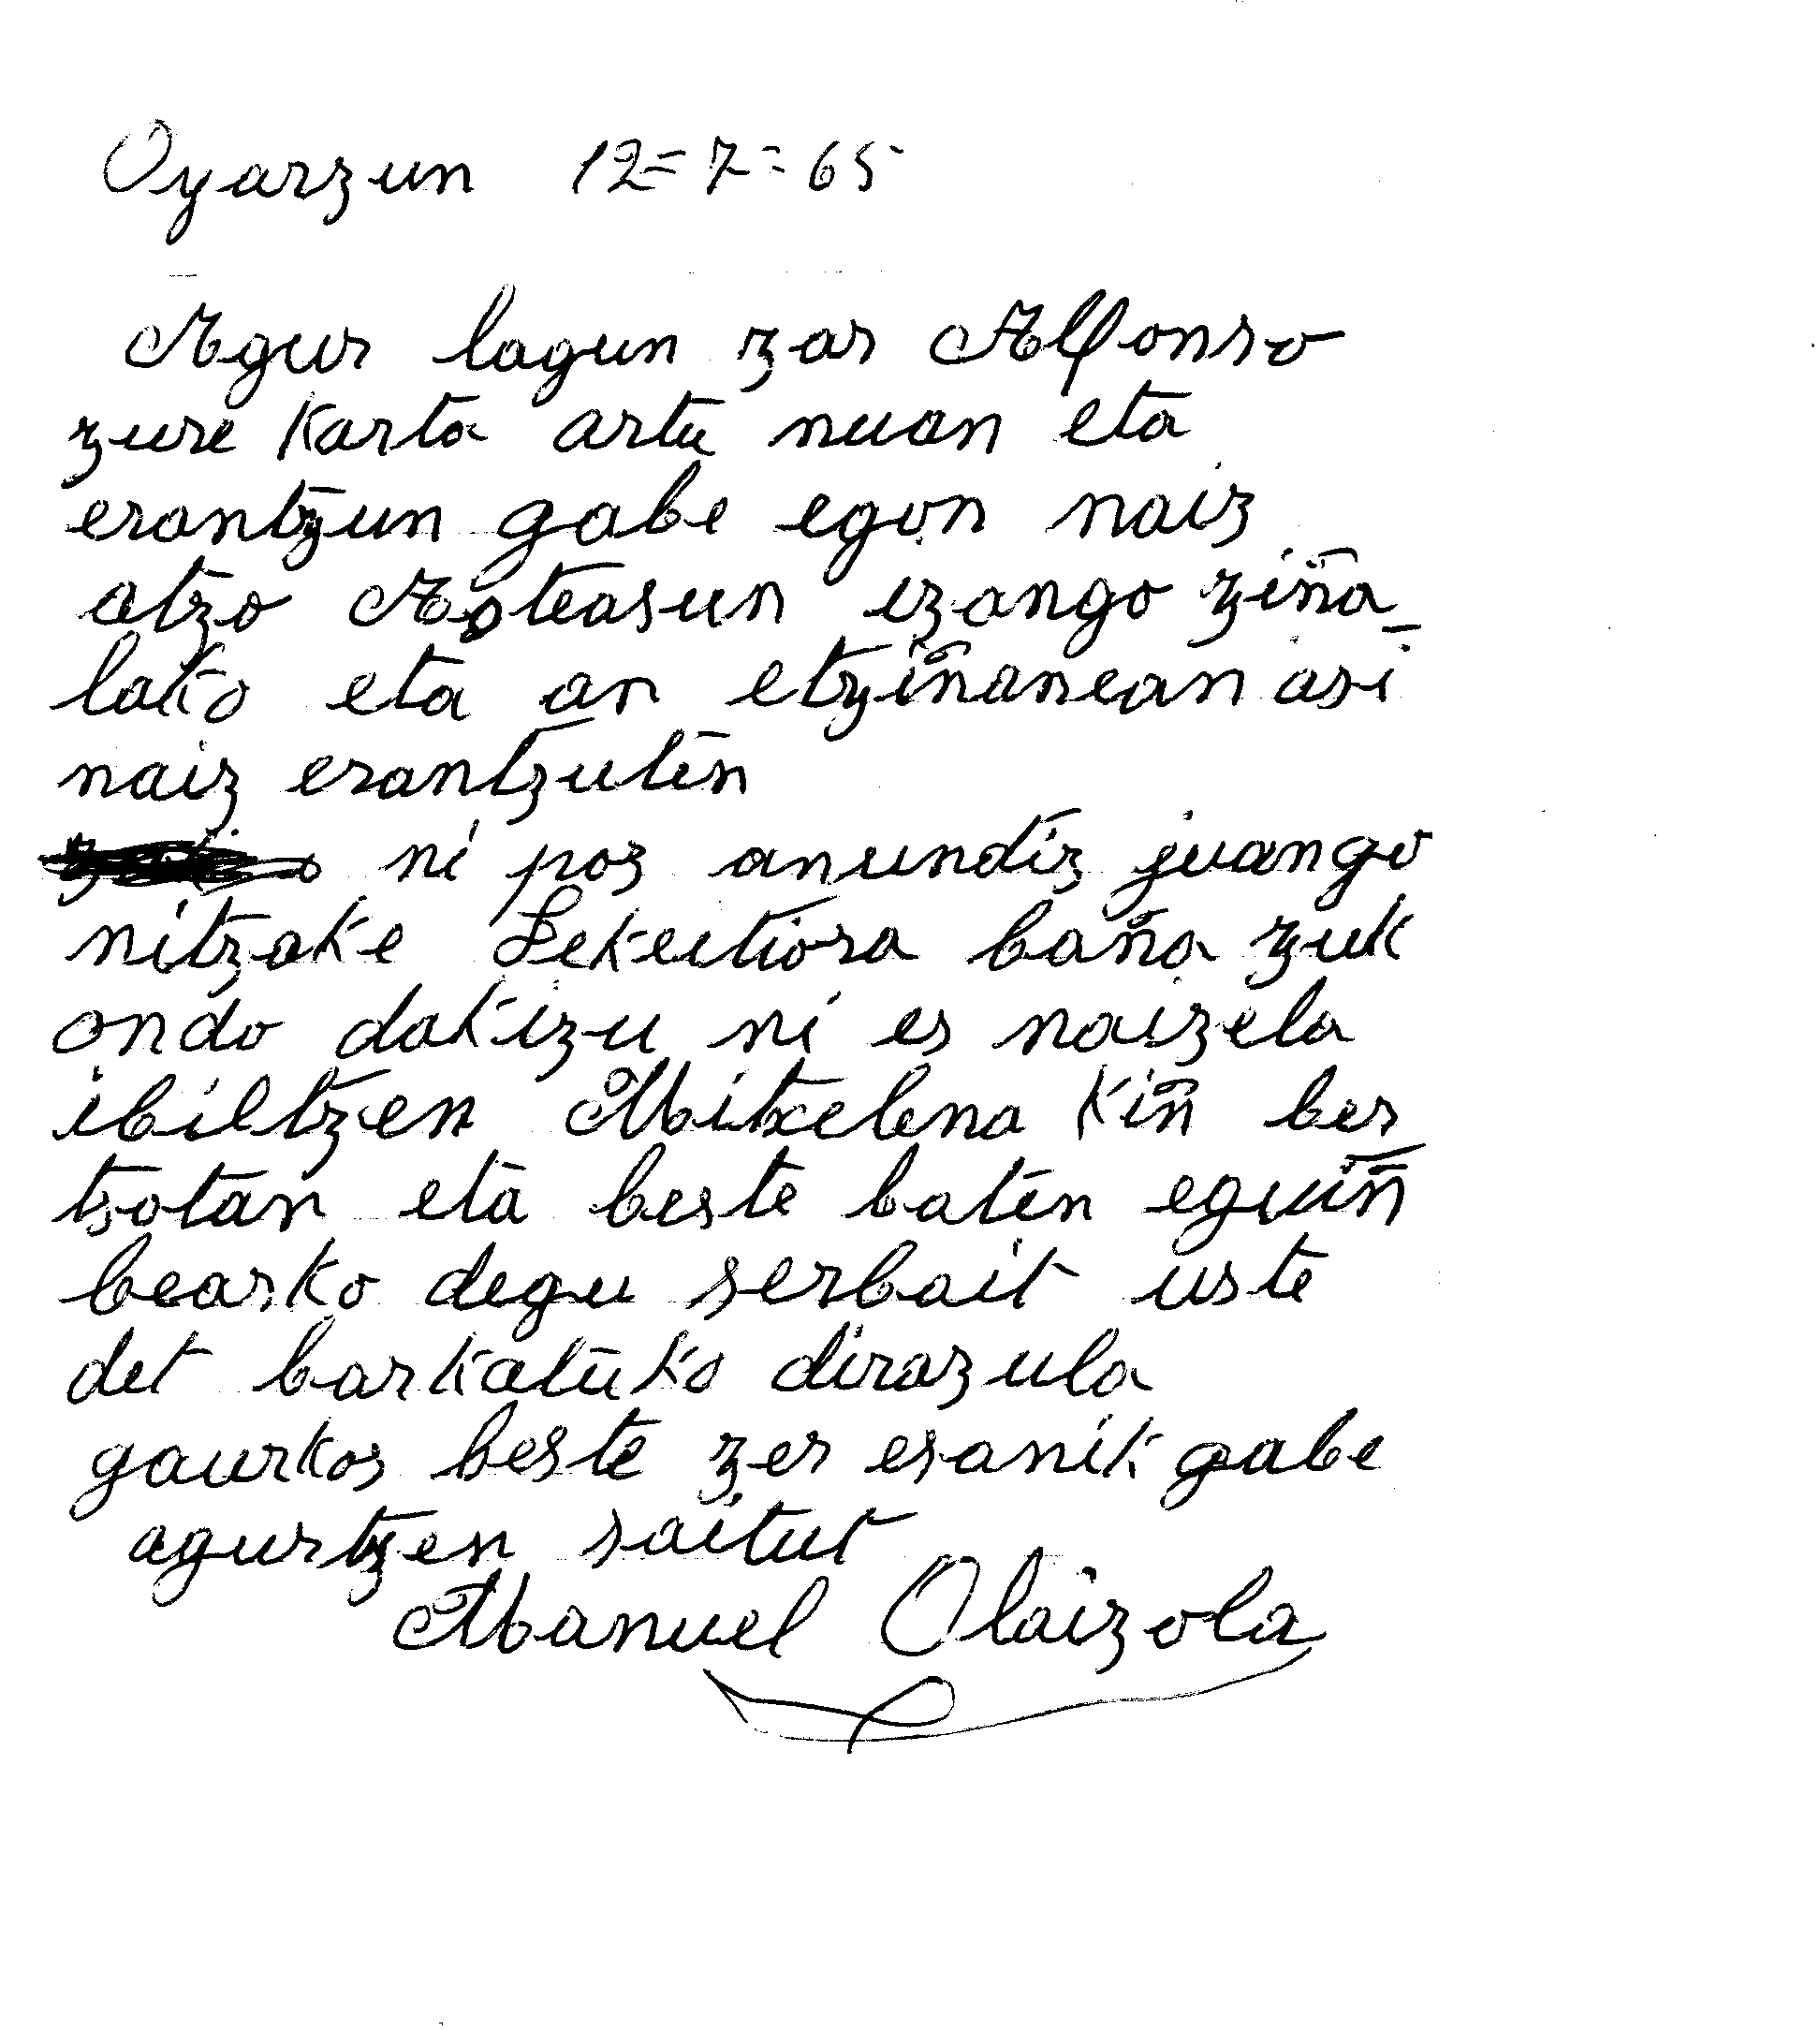 Oyarzun 12=7=65
Agur lagun zar Alfonso
zure karta artu nuan eta
erantzun gabe egon naiz
atzo Asteasun izango ziña_
lako eta an etziñanean asi
naiz erantzuten
ni poz aundiz juango
nitzake Lekeitiora baña zuk
ondo dakizu ni es naizela
ibiltzen Mitxelena kiñ ber_
tsotan eta beste baten eguiñ
bearko degu serbait uste
det barkatuko dirazula
gaurkoz beste zer esanik gabe
agurtzen saitut
Manuel Olaizola